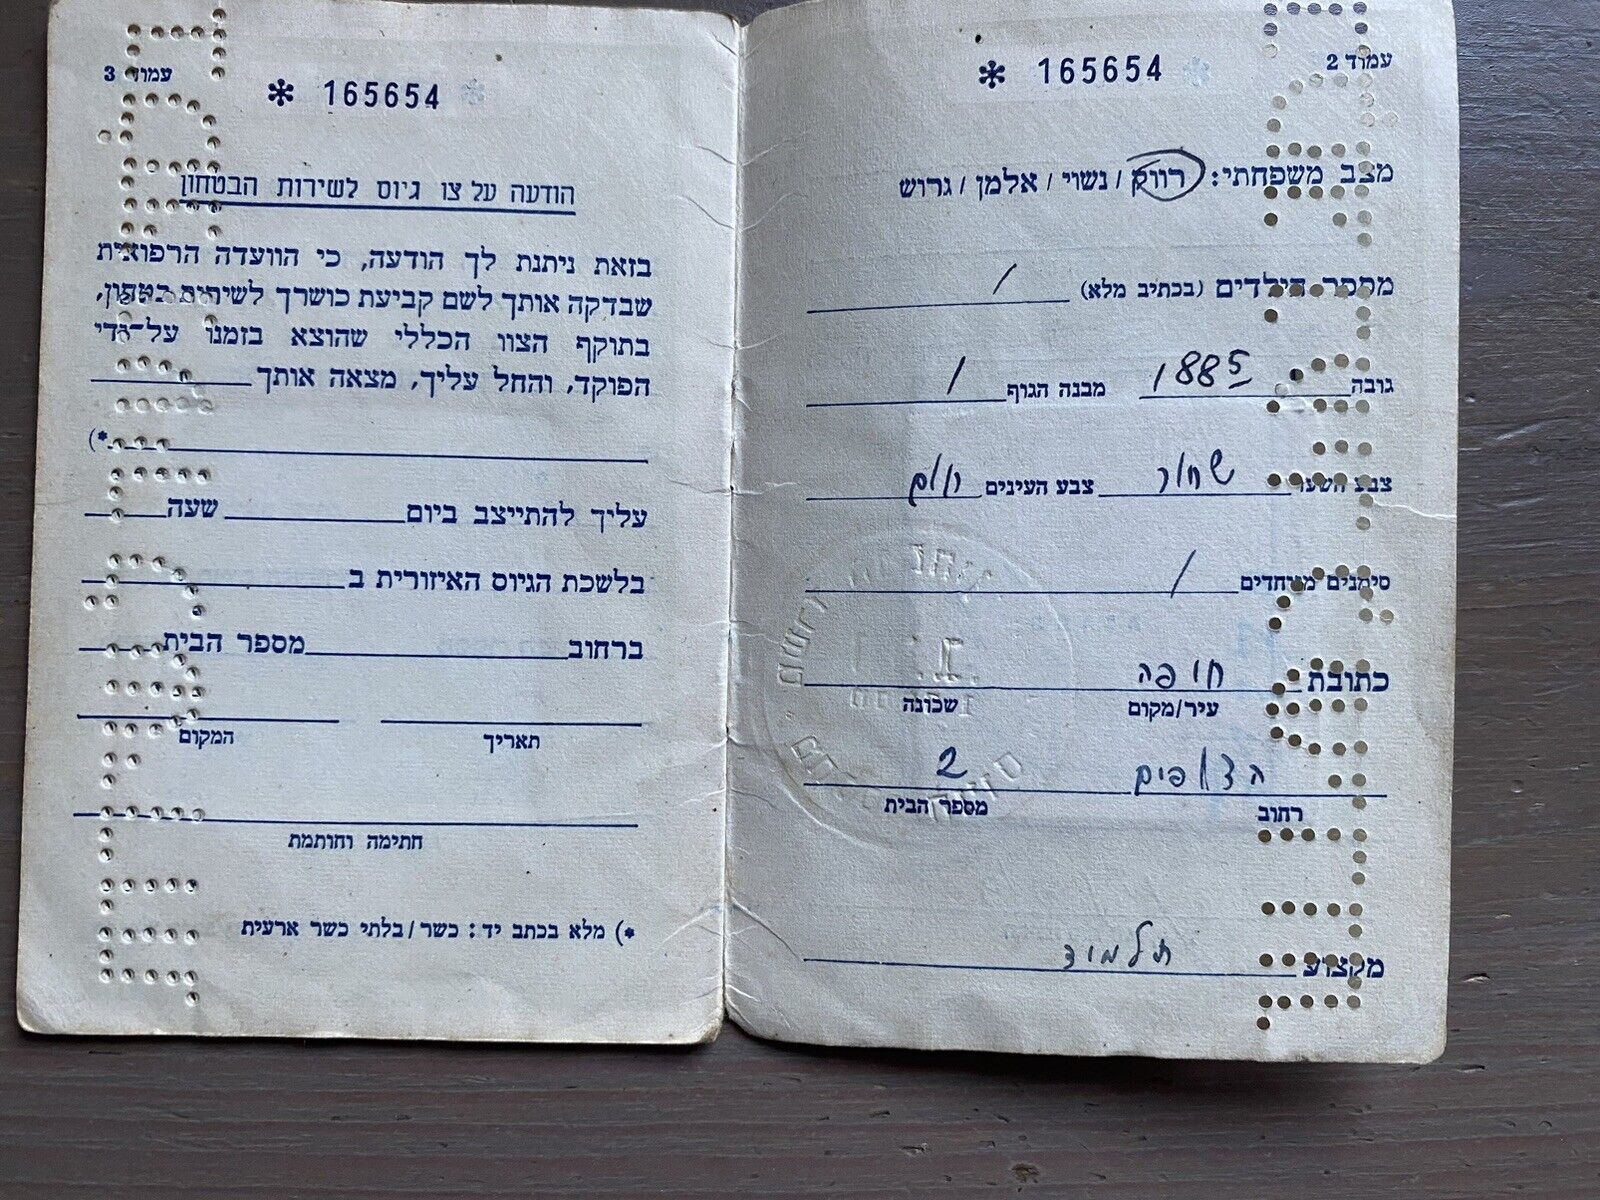 עמוד 2
* 165654
מצב משפחתי: רווק / נשוי / אלמן / גרוש
מספר הילדים (בכתיב מלא) /
גובה 188.5 מבנה הגוף /
צבע השער שחור צבע העינים חום
סימנים מיוחדים /
כתובת חיפה
עיר/מקום שכונה
הצופים 2
רחוב מספר הבית
מקצוע תלמיד
עמוד 3
* 165654
הודעה על צו גיוס לשירות הבטחון
בזאת ניתנת לך הודעה, כי הוועדה הרפואית
שבדקה אותך לשם קביעת כושרך לשירות בטחון,
בתוקף הצוו הכללי שהוצא בזמנו על-ידי
הפוקד, והחל עליך, מצאה אותך
*)
עליך להתייצב ביום שעה
בלשכת הגיוס האיזורית ב
ברחוב מספר הבית
תאריך המקום
חתימה וחותמת
*) מלא בכתב יד: כשר/בלתי כשר ארעית